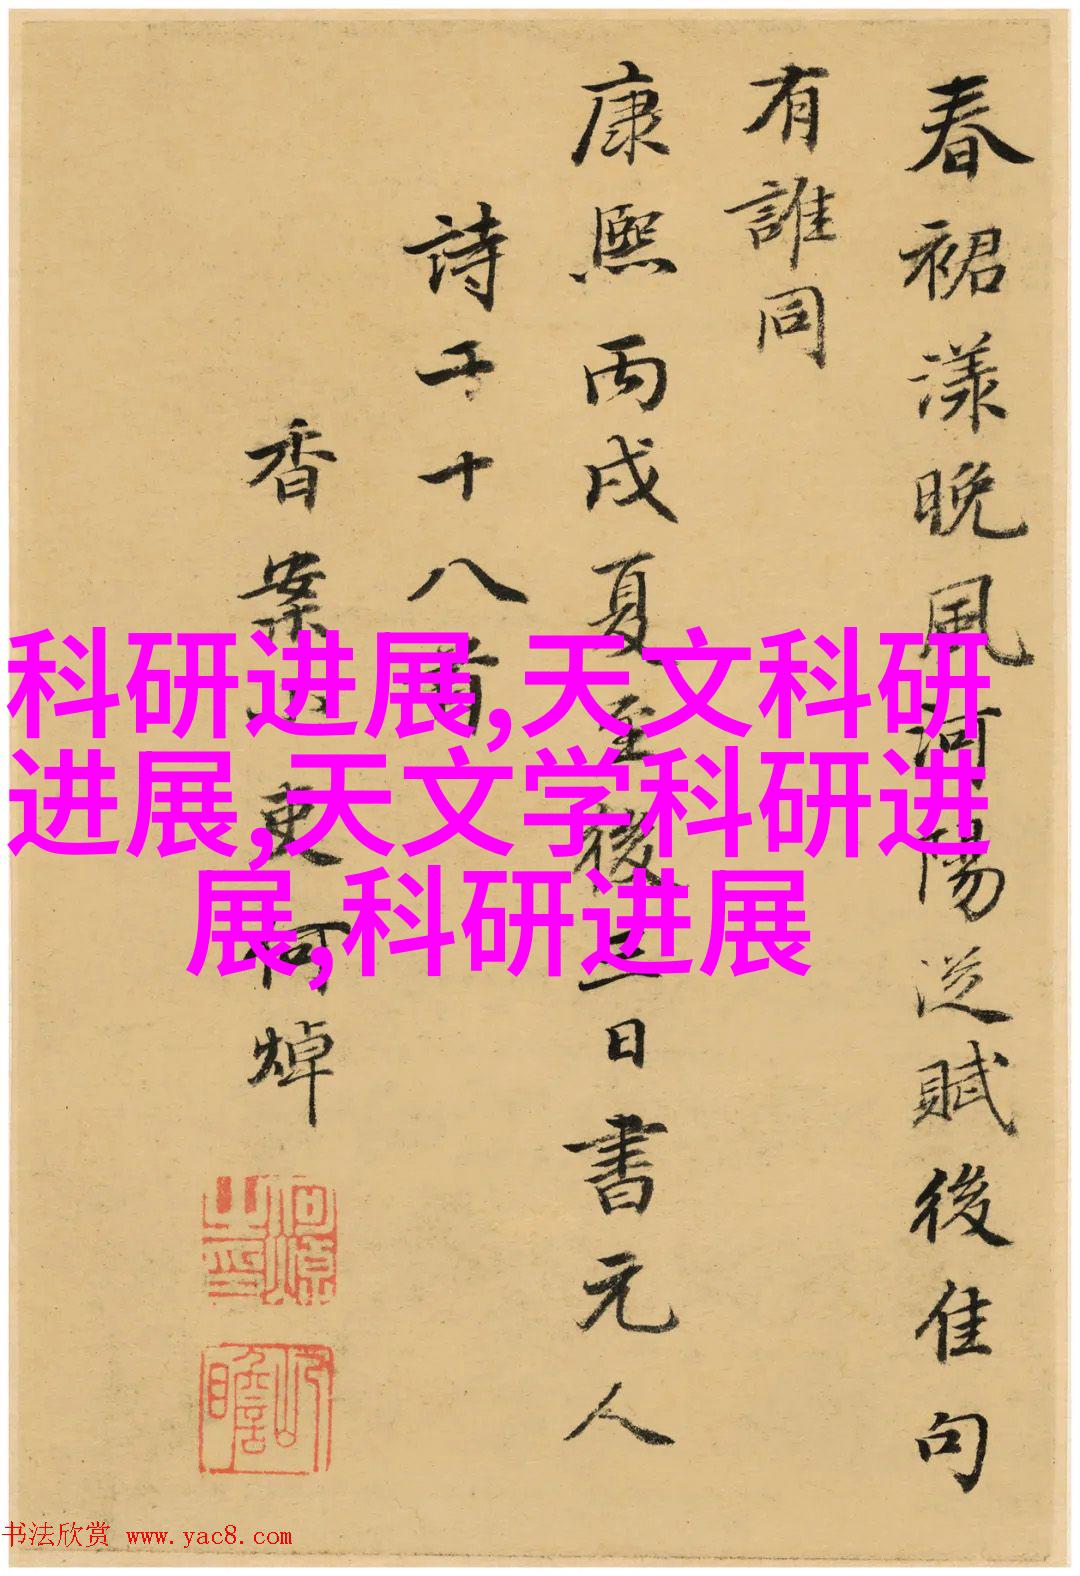 春裙漾晚風河陽從賦後佳句
有誰同
康熙丙戌夏至後三日書元人
詩于十八首
香案小吏何焯
科研进展,天文科研
进展,天文学科研进
展,科研进展
书法欣赏 www.yac8.com